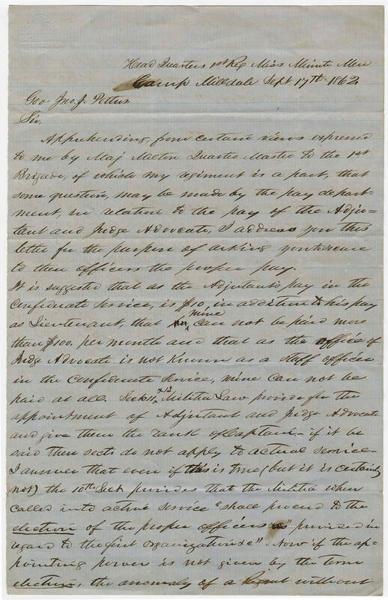 Head Quarters 1st Reg Miss Minute Men
Camp Milldale Sept 17th 1862
Gov Jno. J. Pettus
Sir,
Apprehending from certain views expressed
to me by Maj Melton Quarter Master to the 1st
Brigade, of which my regiment is a part, that
some question may be made by the pay depart-
ment, in relation to the pay of the Adju-
tant and Judge Advocate, I address you this
letter for the purpose of asking you to secure
to them officers the proper pay.
It is suggested that as the Adjutants pay in the
Confederate Service, is $10, in addition to his pay
as Lieutenant, that mine can not be paid more
than $100 per month and that as the office of
Judge Advocate is not known as a Staff officer
in the Confederate Service, mine can not be
paid at all. Militia Law provide for the
appointment of Adjutant and Judge Advocate
and give them the rank of Captain - if it be
said these sects do not apply to actual service
I answer that even if this is true (but it is certainly
not) the 10th Sect provides that the Militia when
called into active service "shall proceed to the
election of the proper officers as provided in
regard to the first organizations". Now if the ap-
pointing power is not given by the term
election, the anomaly of a without